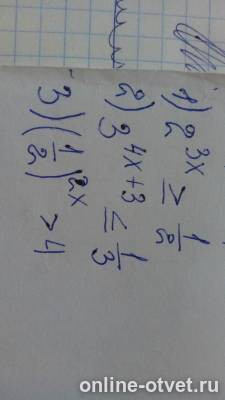 1) 2^{3x} ≥ \frac{1}{2}
2) 3^{4x+3} ≤ \frac{1}{3}
3) (\frac{1}{2})^{2x} > 4
online-otvet.ru